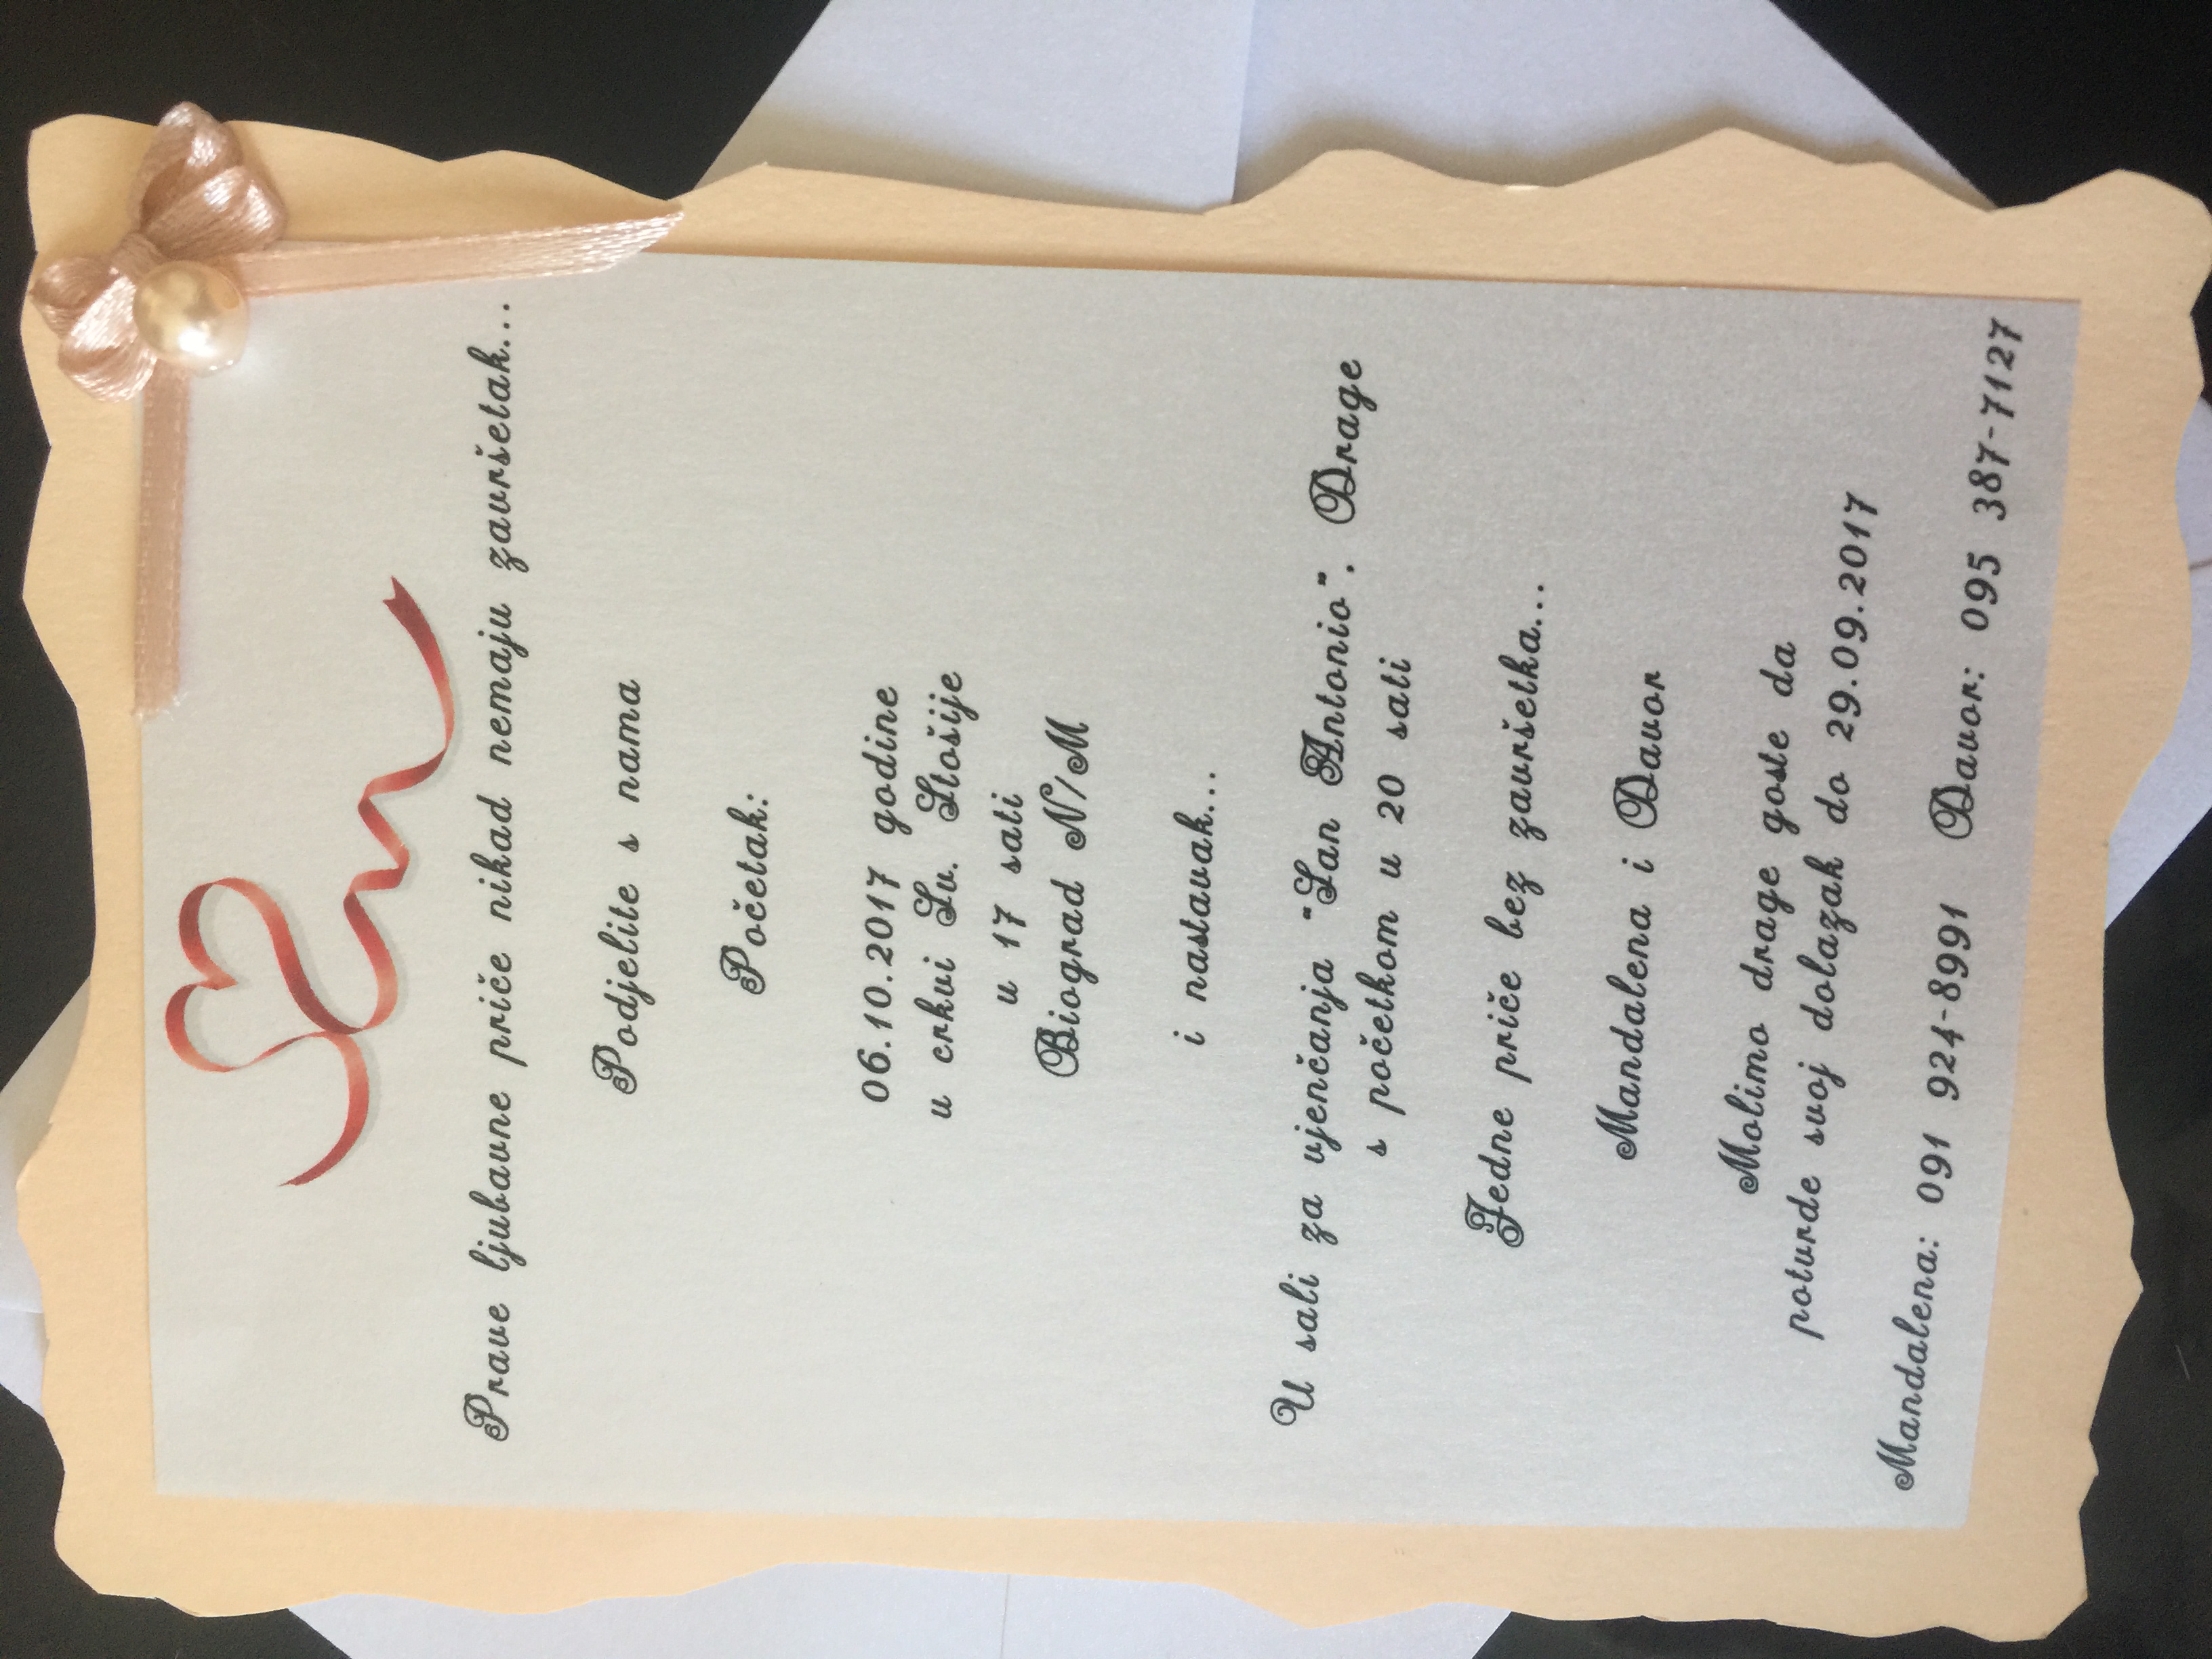 Prave ljubavne priče nikad nemaju završetak...
Podjelite s nama
Početak:
06.10.2017 godine
u crkvi Sv. Stošije
u 17 sati
Biograd N/M
i nastavak...
U sali za vjenčanja "San Antonio". Drage
s početkom u 20 sati
Jedne priče bez završetka...
Mandalena i Davor
Molimo drage goste da
potvrde svoj dolazak do 29.09.2017
Mandalena: 091 924-8991 Davor: 095 387-7127